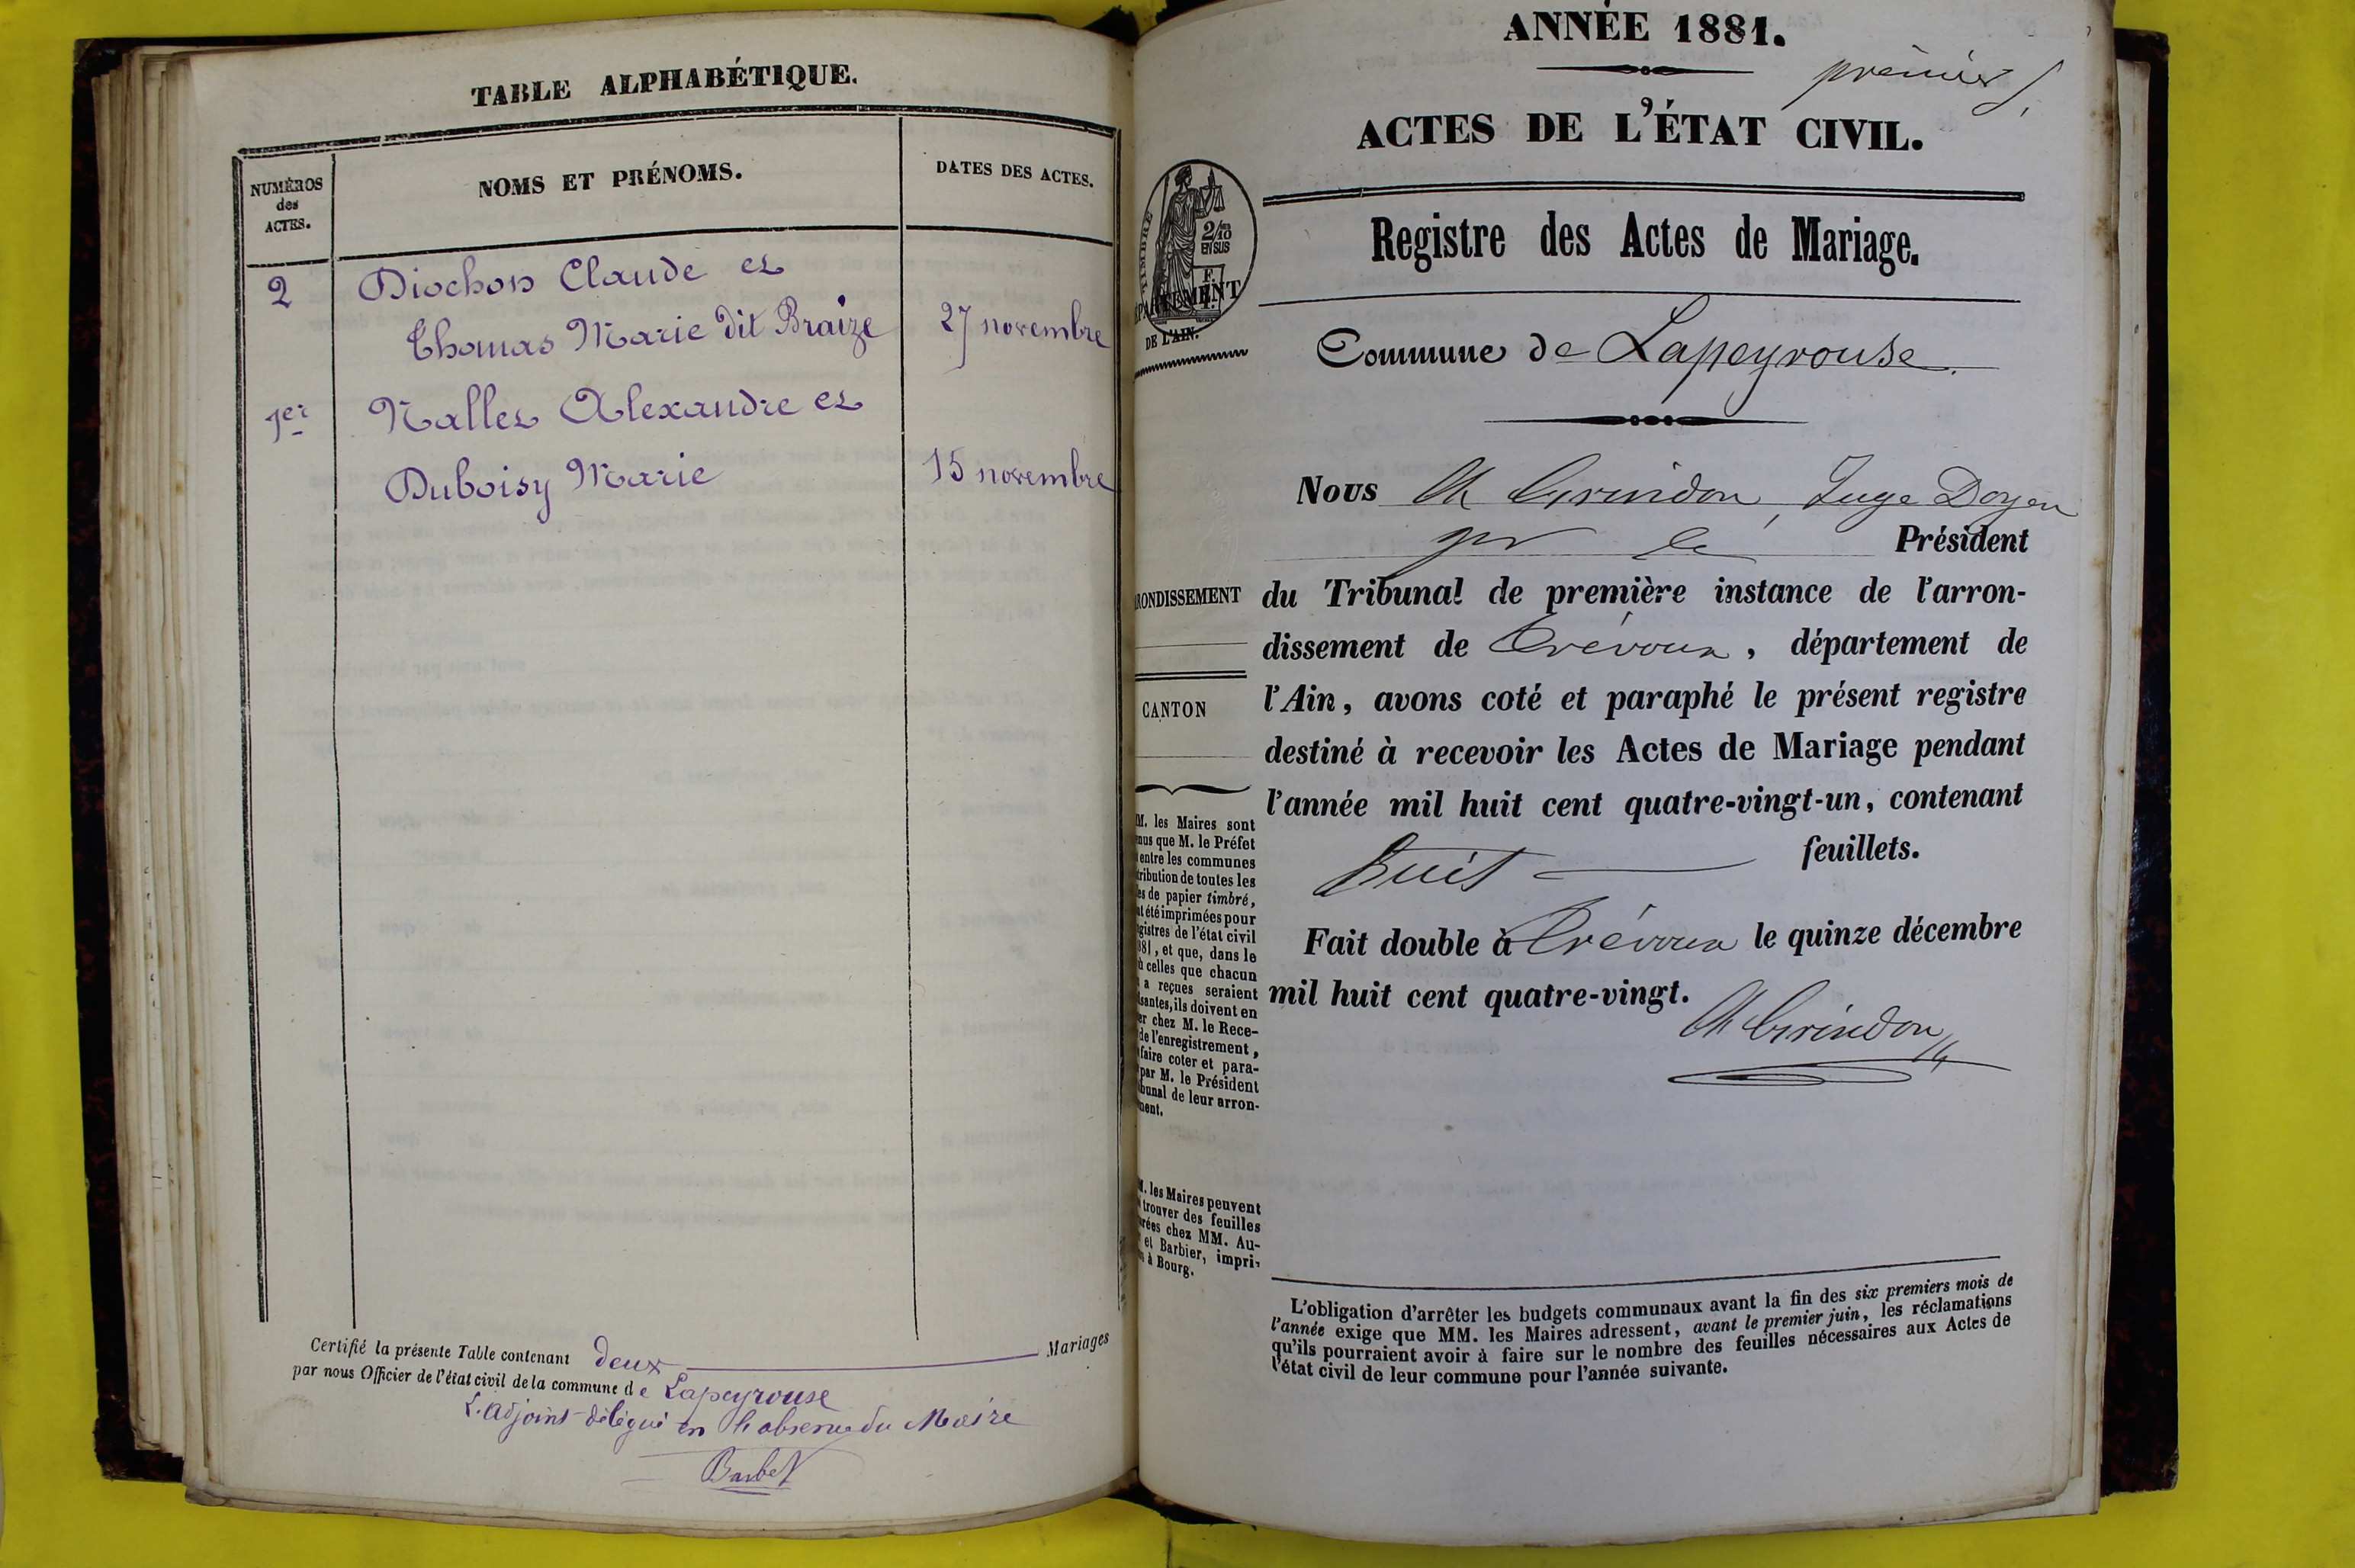 TABLE ALPHABÉTIQUE.
NUMÉROS
des
ACTES.
NOMS ET PRÉNOMS.
DATES DES ACTES.
2 Diochon Claude et
Thomas Marie dit Braize 27 novembre
1er Nallet Alexandre et
Duboisy Marie 15 novembre
Certifié la présente Table contenant deux Mariages
par nous Officier de l'état civil de la commune de Lapeyrouse
L'adjoint délégué en l'absence du Maire
Barbet
ANNÉE 1881.
premier
ACTES DE L'ÉTAT CIVIL.
TIMBRE
2/10
EN SUS
DE L'AIN.
Registre des Actes de Mariage.
Commune de Lapeyrouse.
Nous Ch Grindon, Juge Doyen
pr le Président
du Tribunal de première instance de l'arron-
dissement de Trévoux, département de
l'Ain, avons coté et paraphé le présent registre
destiné à recevoir les Actes de Mariage pendant
l'année mil huit cent quatre-vingt-un, contenant
huit feuillets.
Fait double à Trévoux le quinze décembre
mil huit cent quatre-vingt.
Ch Grindon
RONDISSEMENT
CANTON
M. les Maires sont
nus que M. le Préfet
entre les communes
tribution de toutes les
es de papier timbré,
t été imprimées pour
gistres de l'état civil
881, et que, dans le
ù celles que chacun
a reçues seraient
santes, ils doivent en
er chez M. le Rece-
de l'enregistrement,
faire coter et para-
par M. le Président
bunal de leur arron-
ment.
M. les Maires peuvent
trouver des feuilles
rées chez MM. Au-
et Barbier, impri-
à Bourg.
L'obligation d'arrêter les budgets communaux avant la fin des six premiers mois de
l'année exige que MM. les Maires adressent, avant le premier juin, les réclamations
qu'ils pourraient avoir à faire sur le nombre des feuilles nécessaires aux Actes de
l'état civil de leur commune pour l'année suivante.